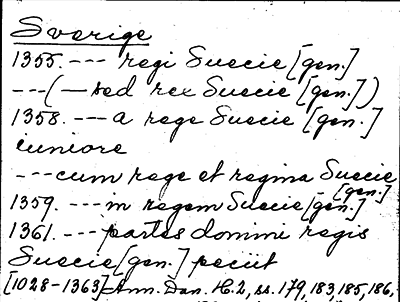 Sverige
1355. --- regi Suecie [gen.]
---(—sed rex Suecie [gen.])
1358. --- a rege Suecie [gen.]
iuniore
---cum rege et regina Suecie [gen.]
1359. --- in regem Suecie [gen.]
1361. --- partes domini regis
Suecie [gen.] peciit
[1028-1363] Ann. Dan. H. 2, ss. 179, 183, 185, 186,